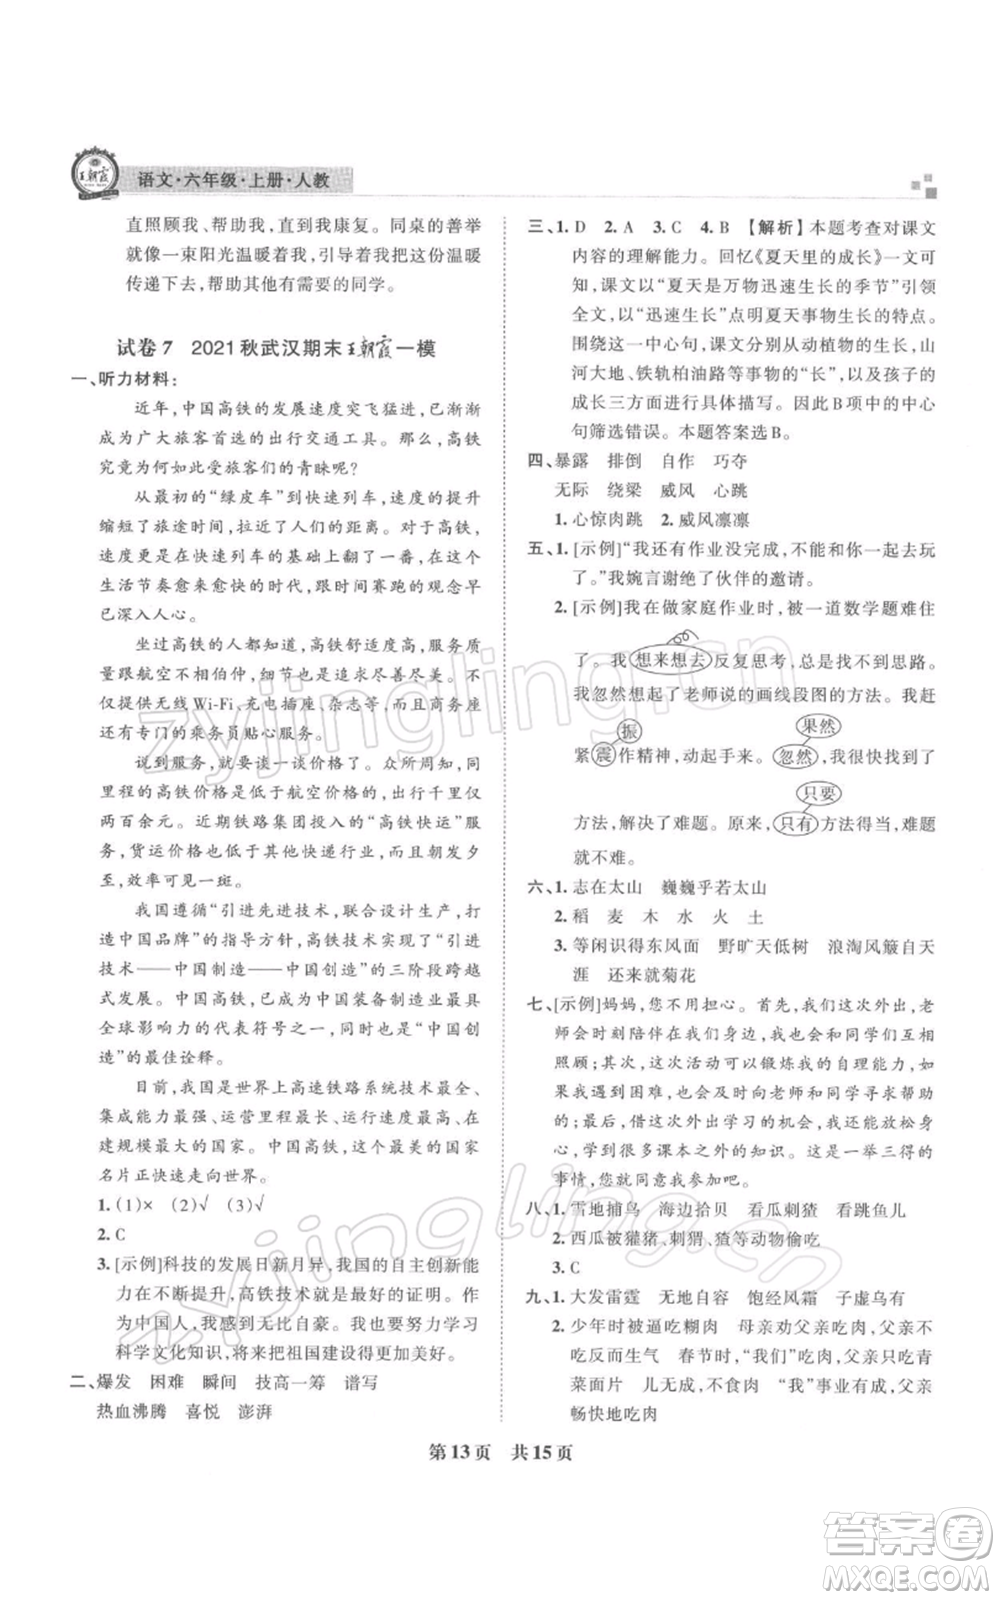 王朝霞
语文·六年级·上册·人教
直照顾我、帮助我,直到我康复。同桌的善举
就像一束阳光温暖着我,引导着我把这份温暖
传递下去,帮助其他有需要的同学。
试卷7 2021秋武汉期末王朝霞一模
一、听力材料:
近年,中国高铁的发展速度突飞猛进,已渐渐
成为广大旅客首选的出行交通工具。那么,高铁
究竟为何如此受旅客们的青睐呢?
从最初的“绿皮车”到快速列车,速度的提升
缩短了旅途时间,拉近了人们的距离。对于高铁,
速度更是在快速列车的基础上翻了一番,在这个
生活节奏愈来愈快的时代,时间赛跑的观念早
已深入人心。
坐过高铁的人都知道,高铁舒适度高、服务质
量直追航空行业,细节也追求尽善尽美。不
仅提供无线Wi-Fi、充电插台、杂志等,而且商务座
有专门的乘务员贴心服务。
说到服务,就要谈一谈价格了。众所周知,同
等里程的高铁价格是低于航空价格,出行千里仅两
百余元。近期铁路集团投入的“高铁快运”服
务,货运价格也低于其他快递行业,而且朝发夕
至,效率可见一斑。
我国遵循“引进先进技术,联合设计生产,打
造中国品牌”的指导方针,高铁技术实现了“引进
技术——中国制造——中国创造”的三阶段跨越
式发展。中国高铁,已成为中国装备制造业具有
全球影响力的代表符号之一,同时也是“中国创
造”的最佳诠释。
目前,我国是世界上高速铁路系统技术最全、
集成能力最强、运营里程最长、运行速度最高、在
建规模最大的国家。中国高铁,这个最美的国家
名片正快速走向世界。
1.(1)× (2)√ (3)√
2.C
3.[示例]科技的发展日新月异,我国的自主创新能
力在不断提升,高铁技术就是最好的证明。作
为中国人,我感到无比自豪。我们要努力学习
科学文化知识,将祖国建设得更加美好。
二、爆发 困难 瞬间 技高一筹 谱写
热血沸腾 喜悦 澎湃
三、1.D 2.A 3.C 4.B 【解析】本题考查对课文
内容的理解能力。回忆《夏天里的成长》一文可
知,课文以“夏天是万物迅速生长的季节”引领
全文,以“迅速生长”点明夏天事物生长的特点。
围绕这一中心句,课文从动植物的生长、山
河大地、铁轨柏油路等事物的“长”,以及孩子的
成长三方面进行具体描写。因此B项中的中心
句筛选错误。本题答案选B。
四、暴露 排倒 自作 巧夺
无际 绕梁 威风 心跳
1.心惊肉跳 2.威风凛凛
五、1.[示例]“我还有作业没完成,不能和你一起去玩
了。”我婉言谢绝了伙伴的邀请。
2.[示例]我在做家庭作业时,被一道数学题难住
了。我想来想去反复思考,总是找不到思路。
我忽然想起了老师说的画线段图的方法。我赶
振 果然
紧震作精神,动起手来。忽然,我很快找到了
只要
方法,解决了难题。原来,只有方法得当,难题
就不难。
六、1.志在太山 巍巍乎若太山
2.稻 麦 木 水 火 土
3.等闲识得东风面 野旷天低树 浪淘风簸自天
涯 还来就菊花
七、[示例]妈妈,您不用担心。首先,我们这次外出,老
师会时刻陪伴在我们身边,我也会和同学们互相
照顾;其次,这次活动可以锻炼我的自理能力,如
果我遇到困难,也可以及时向老师和同学寻求帮助
的;我很少有这样外出学习的机会,我可以放松身
心,学到很多课本之外的知识。这是一举三得的
事情,您就同意我参加吧。
八、1.雪地捕鸟 海边拾贝 看瓜刺猹 看跳鱼儿
2.西瓜被獾猪、刺猬、猹等动物偷吃
3.C
九、1.大发雷霆 无地自容 饱经风霜 子虚乌有
2.少年时被逼吃糊肉 母亲劝父亲吃肉,父亲不
吃反而生气 春节时,“我们”吃肉,父亲只吃青
菜萝卜 儿成年后,不食肉 “我”事业有成,父亲
畅快地吃肉
第13页 共15页
zyjingling.cn
zyjingling.cn
答案卷
MXQE.COM